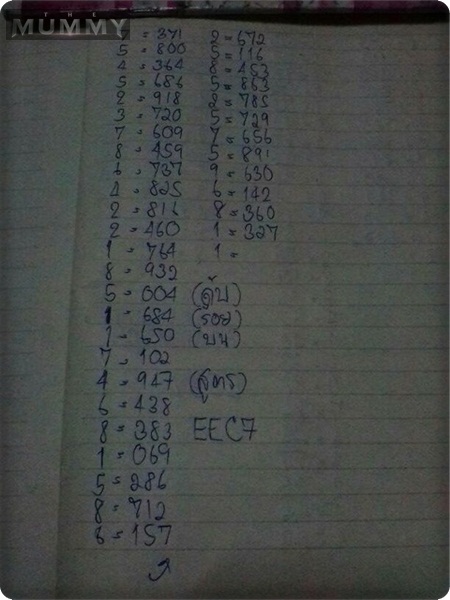 MUMMY
= 371
5 = 800
4 = 364
5 = 686
2 = 918
3 = 720
7 = 609
8 = 459
6 = 737
4 = 825
2 = 816
2 = 460
1 = 764
8 = 932
5 = 004 (ดับ)
1 = 684 (รอง)
1 = 650 (บน)
7 = 102
4 = 947 (สูตร)
6 = 438
8 = 383 EEC7
1 = 069
5 = 286
8 = 712
8 = 157
2 = 672
5 = 116
8 = 453
5 = 863
2 = 785
5 = 729
7 = 656
5 = 891
9 = 630
6 = 142
8 = 360
1 = 327
1 =